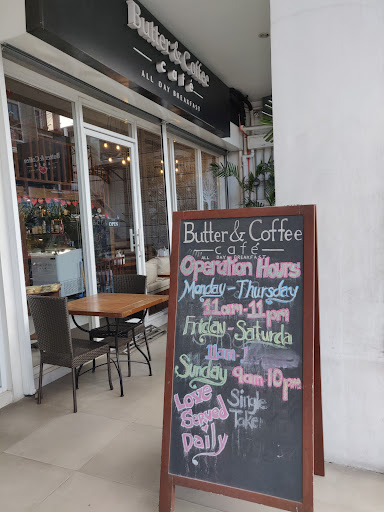 Butter & Coffee
café
ALL DAY BREAKFAST
OPEN
Butter & Coffee
café
ALL DAY BREAKFAST
Operation Hours
Monday - Thursday
11am - 11pm
Friday - Saturda
11am 1
Sunday 9am 10pm
Love
Served
Daily
Single
Take